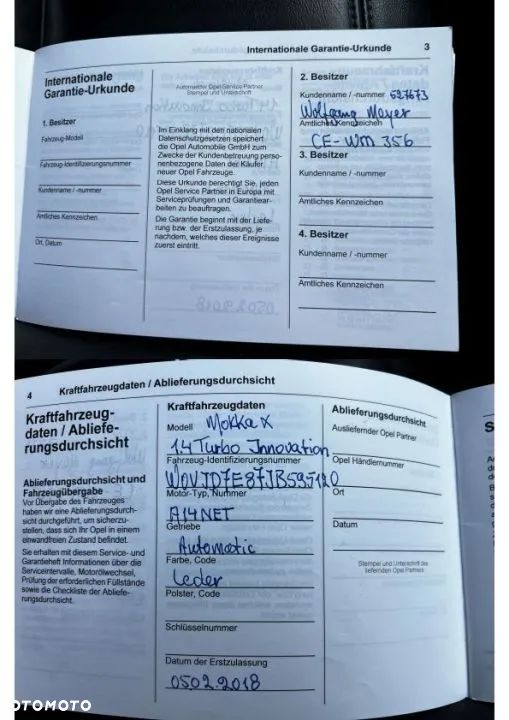 Internationale Garantie-Urkunde 3
Internationale
Garantie-Urkunde
1. Besitzer
Fahrzeug-Modell
Fahrzeug-Identifizierungsnummer
Kundenname / -nummer
Amtliches Kennzeichen
Ort, Datum
Autorisierter Opel Service Partner
Stempel und Unterschrift
Im Einklang mit den nationalen
Datenschutzgesetzen speichert
die Opel Automobile GmbH zum
Zwecke der Kundenbetreuung perso-
nenbezogene Daten der Käufer
neuer Opel Fahrzeuge.
Diese Urkunde berechtigt Sie, jeden
Opel Service Partner in Europa mit
Serviceprüfungen und Garantiear-
beiten zu beauftragen.
Die Garantie beginnt mit der Liefe-
rung bzw. der Erstzulassung, je
nachdem, welches dieser Ereignisse
zuerst eintritt.
2. Besitzer
Kundenname / -nummer 527673
Wolfgang Meyer
Amtliches Kennzeichen
CE-WM 356
3. Besitzer
Kundenname / -nummer
Amtliches Kennzeichen
4. Besitzer
Kundenname / -nummer
Amtliches Kennzeichen
4 Kraftfahrzeugdaten / Ablieferungsdurchsicht
Kraftfahrzeug-
daten / Abliefe-
rungsdurchsicht
Ablieferungsdurchsicht und
Fahrzeugübergabe
Vor Übergabe des Fahrzeuges
haben wir eine Ablieferungsdurch-
sicht durchgeführt, um sicherzu-
stellen, dass sich Ihr Opel in einem
einwandfreien Zustand befindet.
Sie erhalten mit diesem Service- und
Garantieheft Informationen über die
Serviceintervalle, Motorölwechsel,
Prüfung der erforderlichen Füllstände
sowie die Checkliste der Abliefe-
rungsdurchsicht.
Kraftfahrzeugdaten
Modell Mokka X
1.4 Turbo Innovation
Fahrzeug-Identifizierungsnummer
Motor-Typ, Nummer
A14NET
Getriebe
Automatic
Farbe, Code
Leder
Polster, Code
Schlüsselnummer
Datum der Erstzulassung
05.02.2018
Ablieferungsdurchsicht
Ausliefernder Opel Partner
Opel Händlernummer
Ort
Datum
Stempel und Unterschrift des
liefernden Opel Partners
OTOMOTO